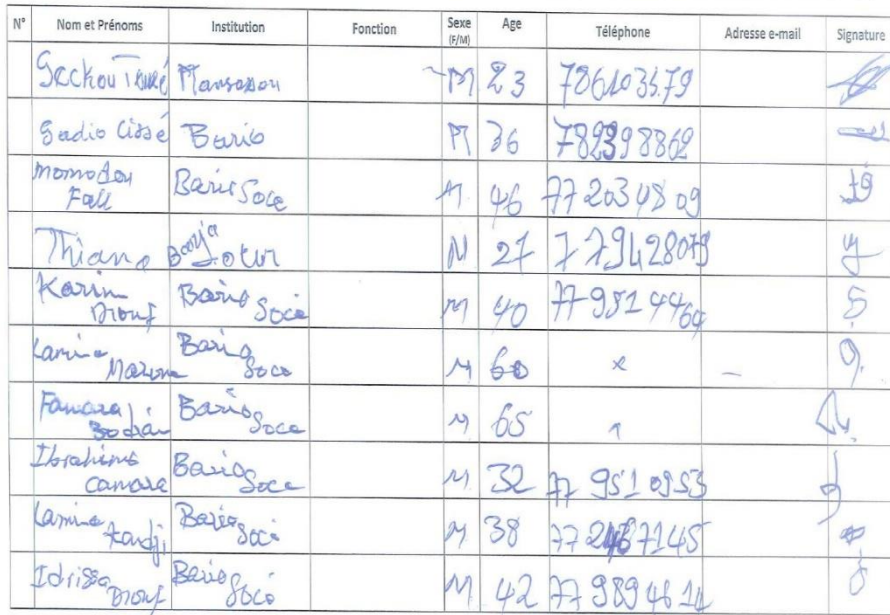 N° Nom et Prénoms Institution Fonction Sexe (F/M) Age Téléphone Adresse e-mail Signature
Seckou Touré Mansadou M 23 786103579
Sadio Cissé Bario M 36 8862
Momodou Fall Bario Soce M 46 77 203 48 09
Thiam M 27 779428079
Karim Diouf Bario Soce M 40 77 951 4464
Lamine Bario Soce M 60 x
Famara Bodian Bario Soce M 65
Ibrahima Camara Bario Soce M 32 77 951 0953
Lamine Bario Soce M 38 77 7145
Idrissa Diouf Bario Soce M 42 77 989 46 14